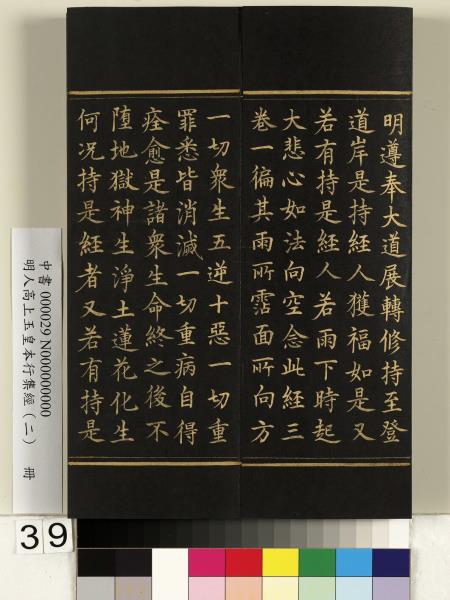 明遵奉大道展轉修持至登
道岸是持經人獲福如是又
若有持是經人若雨下時起
大悲心如法向空念此經三
卷一徧其雨所霑面所向方
一切衆生五逆十惡一切重
罪悉皆消滅一切重病自得
痊愈是諸衆生命終之後不
墮地獄神生淨土蓮花化生
何况持是經者又若有持是
中書 000029 N000000000
明人高上玉皇本行集經（二） 冊
39